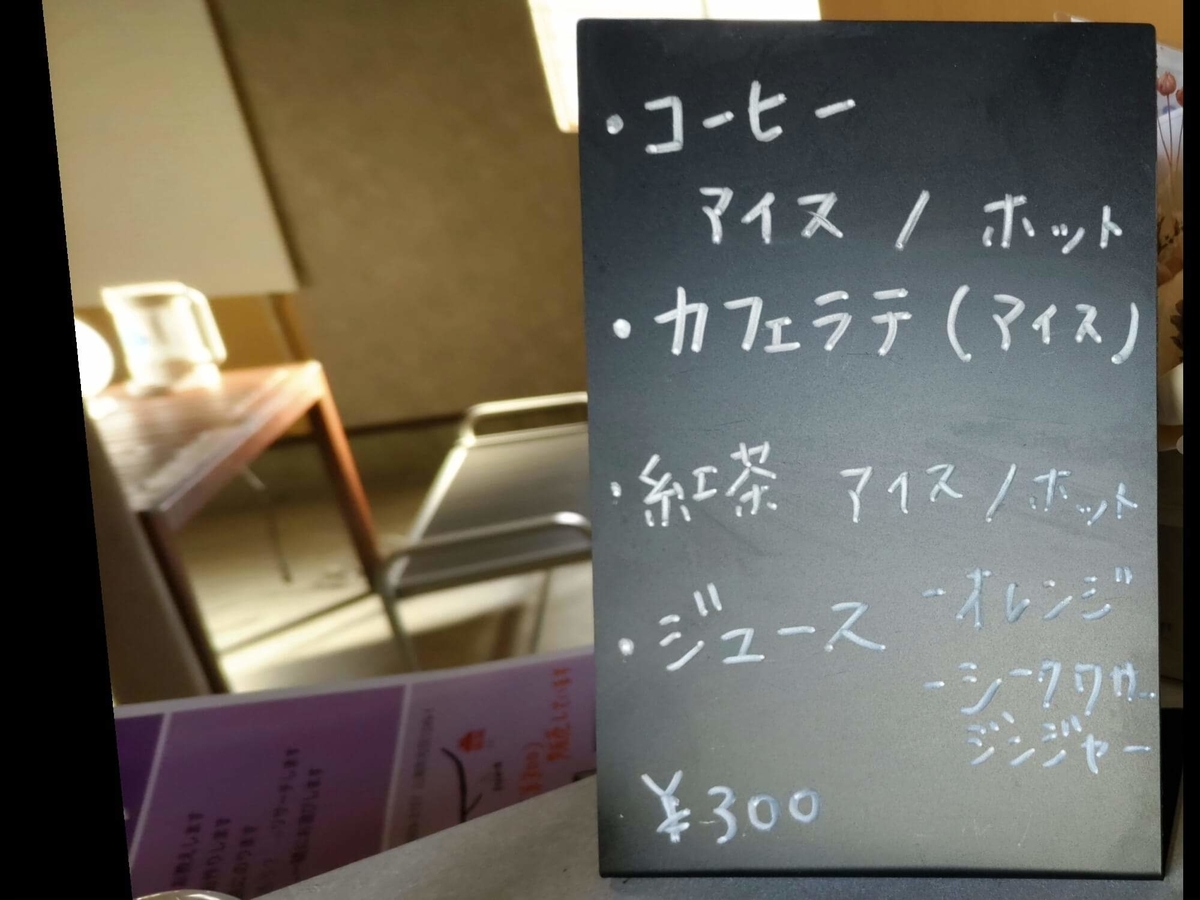 ・コーヒー
アイス / ホット
・カフェラテ (アイス)
・紅茶 アイス / ホット
・ジュース -オレンジ
-シークワサー
ジンジャー
¥300